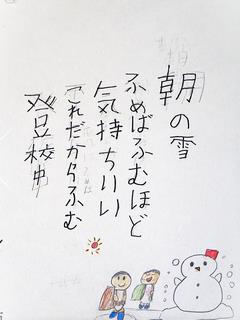 朝の雪
ふめばふむほど
気持ちいい
これだからふむ
登校中